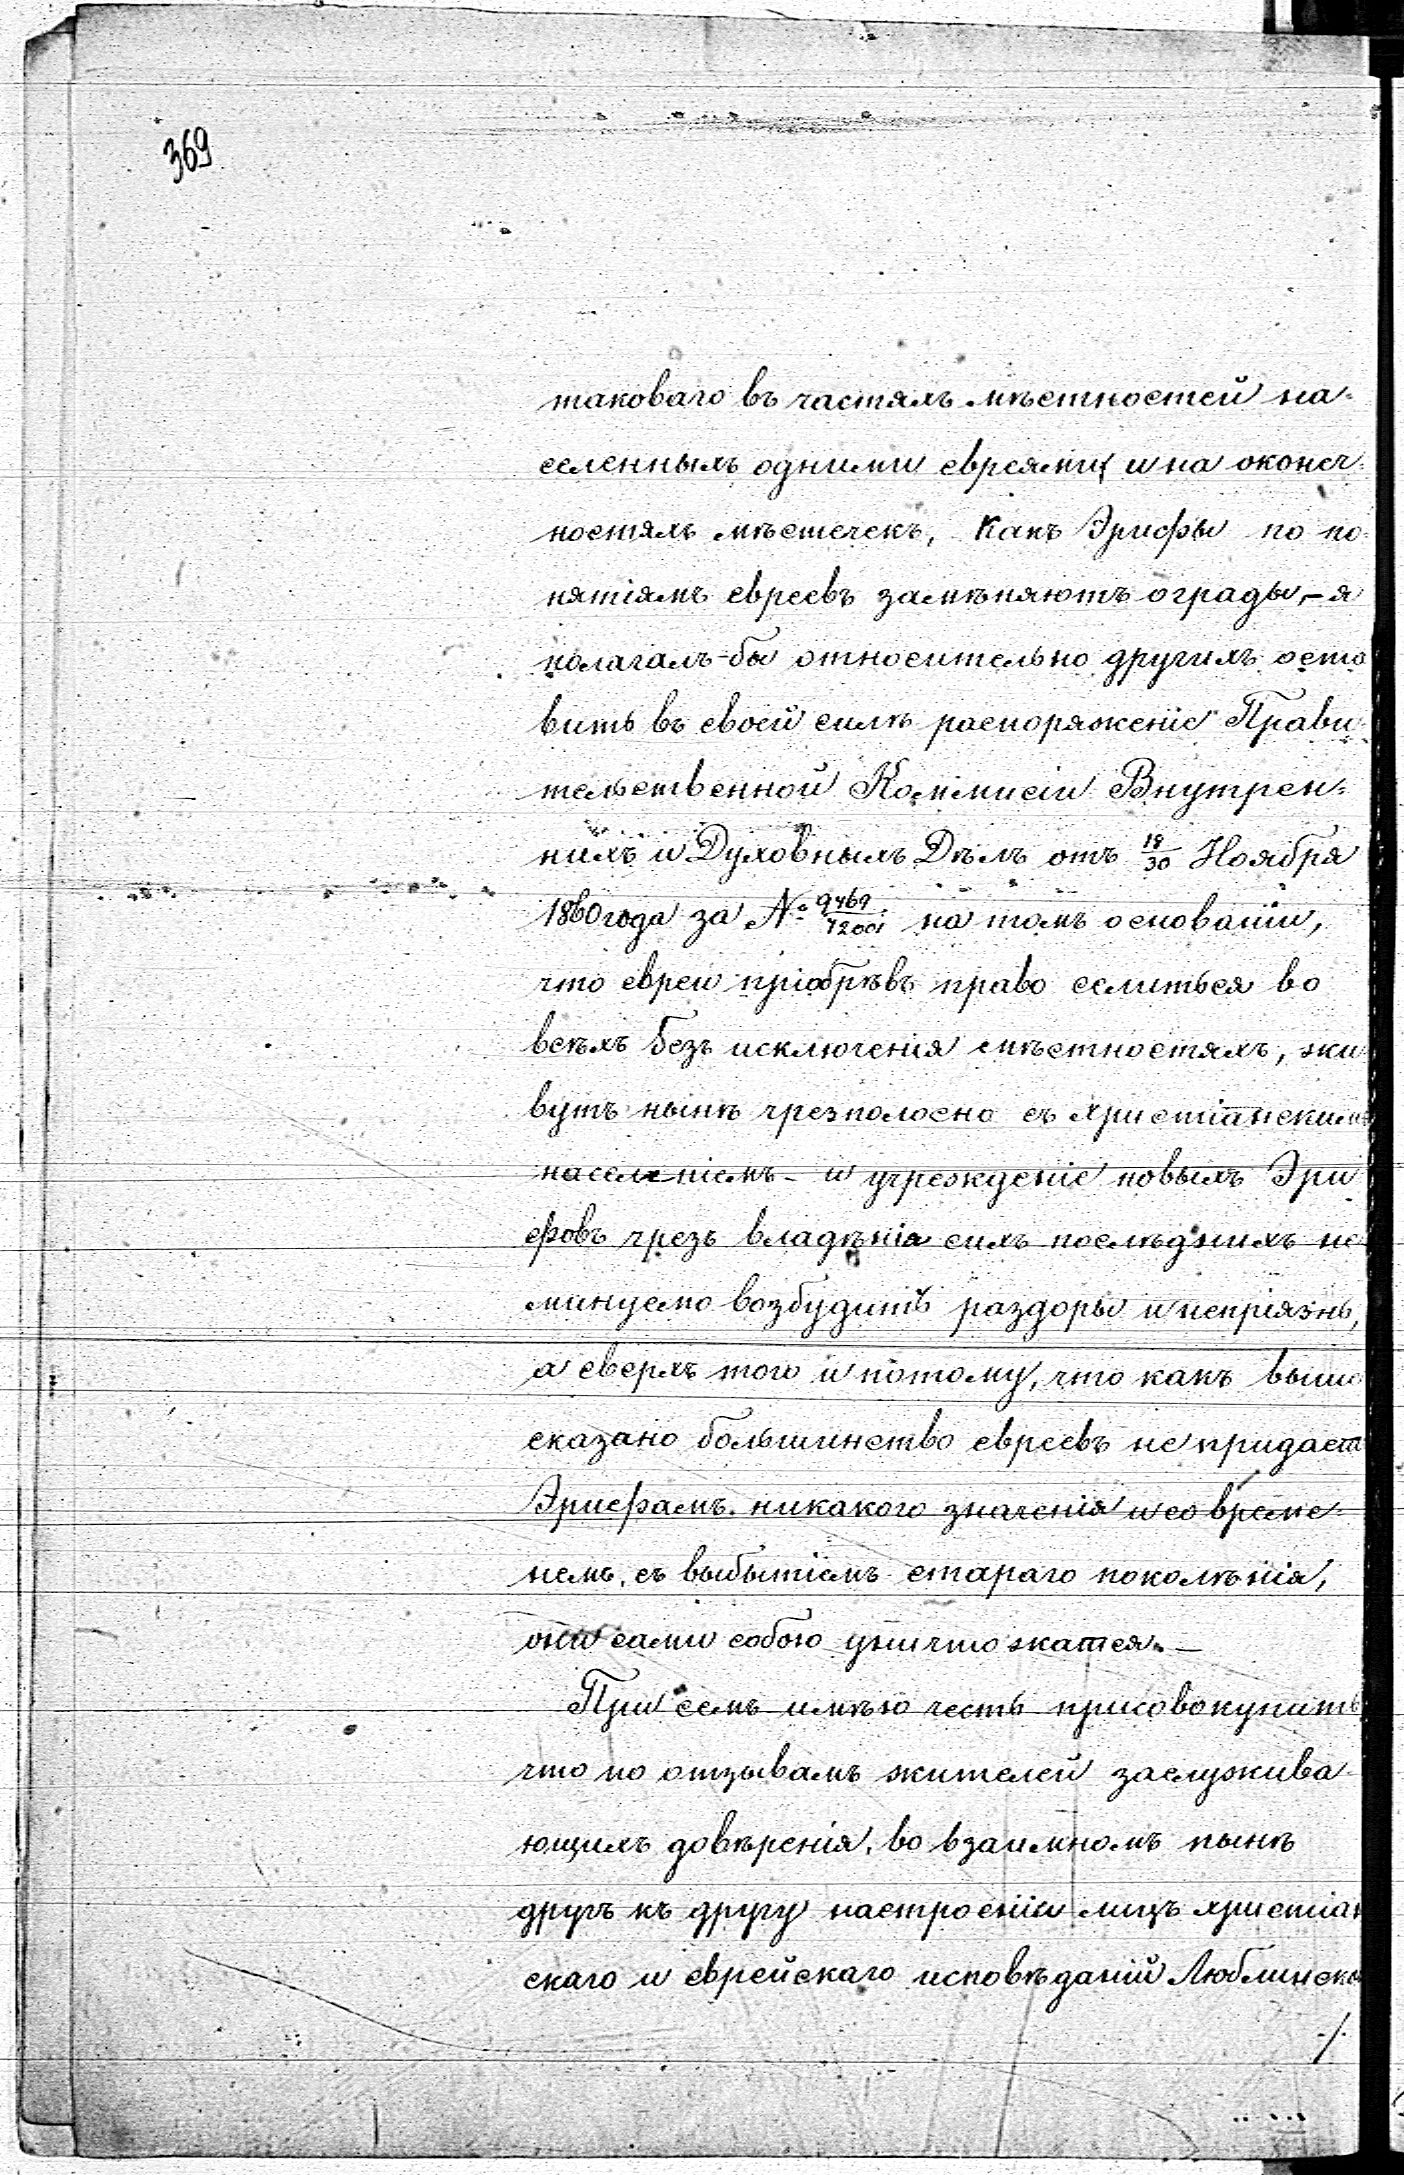 369
таковаго въ частяхъ мѣстностей на-
селенныхъ одними евреями и на оконеч-
ностяхъ мѣстечекъ, какъ Эрифы по по-
нятіямъ евреевъ замѣняютъ ограды, – я
полагалъ-бы относительно другихъ оста
вить въ своей силѣ распоряженіе Прави-
тельственной Коммисіи Внутрен-
нихъ и Духовныхъ Дѣлъ отъ 18/30 Ноября
1860 года за № 9469/72001 на томъ основаніи,
что евреи пріобрѣвъ право селиться во
всѣхъ безъ исключенія мѣстностяхъ, жи
вутъ нынѣ чрезполосно съ христіанскимъ
населеніемъ – и учрежденіе новыхъ Эри
фовъ чрезъ владѣнія сихъ послѣднихъ не
минуемо возбудитъ раздоры и непріязнь,
а сверхъ того и потому, что какъ выше
сказано большинство евреевъ не придаетъ
Эрифамъ никакого значенія и со време-
немъ, съ выбытіемъ стараго поколѣнія,
они сами собою уничтожатся. –
При семъ имѣю честь присовокупить
что по отзывамъ жителей заслужива-
ющихъ довѣренія, во взаимномъ нынѣ
другъ къ другу настроеніи лицъ христіан
скаго и еврейскаго исповѣданій Люблинска
./.